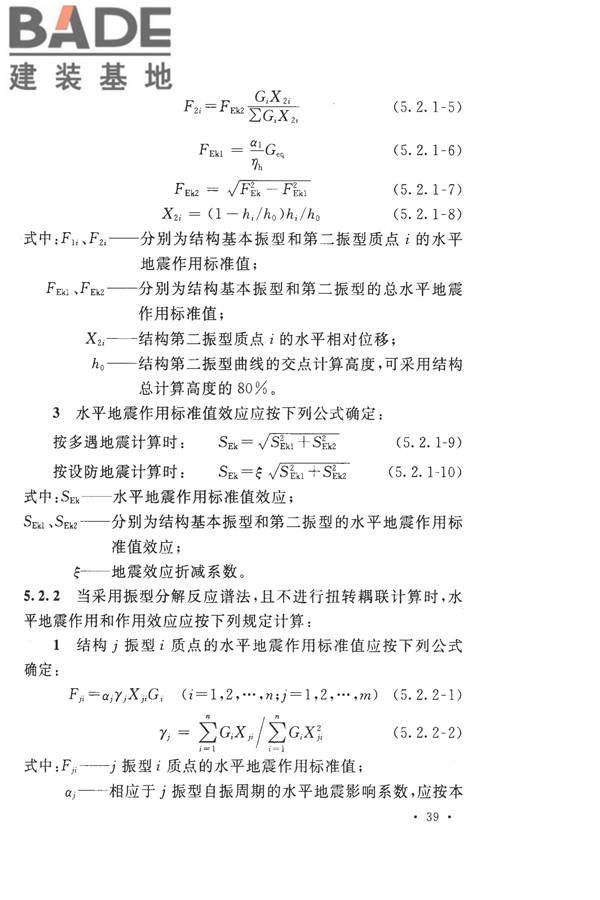 BADE
建装基地
F₂ᵢ=F_Ek2 GᵢX₂ᵢ/∑GᵢX₂ᵢ (5.2.1-5)
F_Ek1 = α₁/η_h G_eq (5.2.1-6)
F_Ek2 = √(F²_Ek − F²_Ek1) (5.2.1-7)
X₂ᵢ = (1−hᵢ/h₀)hᵢ/h₀ (5.2.1-8)
式中:F₁ᵢ、F₂ᵢ——分别为结构基本振型和第二振型质点 i 的水平
地震作用标准值；
F_Ek1、F_Ek2——分别为结构基本振型和第二振型的总水平地震
作用标准值；
X₂ᵢ——结构第二振型质点 i 的水平相对位移；
h₀——结构第二振型曲线的交点计算高度,可采用结构
总计算高度的 80%。
3 水平地震作用标准值效应应按下列公式确定：
按多遇地震计算时： S_Ek=√(S²_Ek1+S²_Ek2) (5.2.1-9)
按设防地震计算时： S_Ek=ξ√(S²_Ek1+S²_Ek2) (5.2.1-10)
式中:S_Ek——水平地震作用标准值效应；
S_Ek1、S_Ek2——分别为结构基本振型和第二振型的水平地震作用标
准值效应；
ξ——地震效应折减系数。
5.2.2 当采用振型分解反应谱法,且不进行扭转耦联计算时,水
平地震作用和作用效应应按下列规定计算：
1 结构 j 振型 i 质点的水平地震作用标准值应按下列公式
确定：
F_ji=αⱼγⱼX_jiGᵢ (i=1,2,…,n;j=1,2,…,m) (5.2.2-1)
γⱼ = ∑ⁿᵢ₌₁GᵢX_ji/∑ⁿᵢ₌₁GᵢX²_ji (5.2.2-2)
式中:F_ji——j 振型 i 质点的水平地震作用标准值；
αⱼ——相应于 j 振型自振周期的水平地震影响系数,应按本
· 39 ·